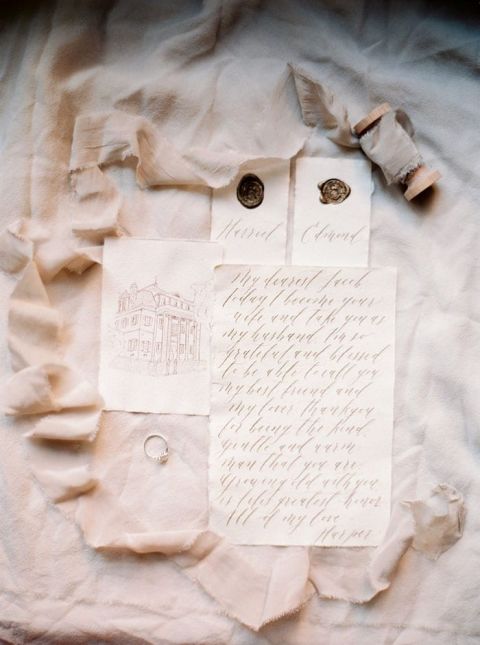 Harriet
Edmond
My dearest Jacob
today I become your
wife and take you as
my husband. I'm so
grateful and blessed
to be able to call you
my best friend and
my lover. thank you
for being the kind,
gentle and warm
man that you are.
Growing old with you
is life's greatest honor
All of my love
Harper